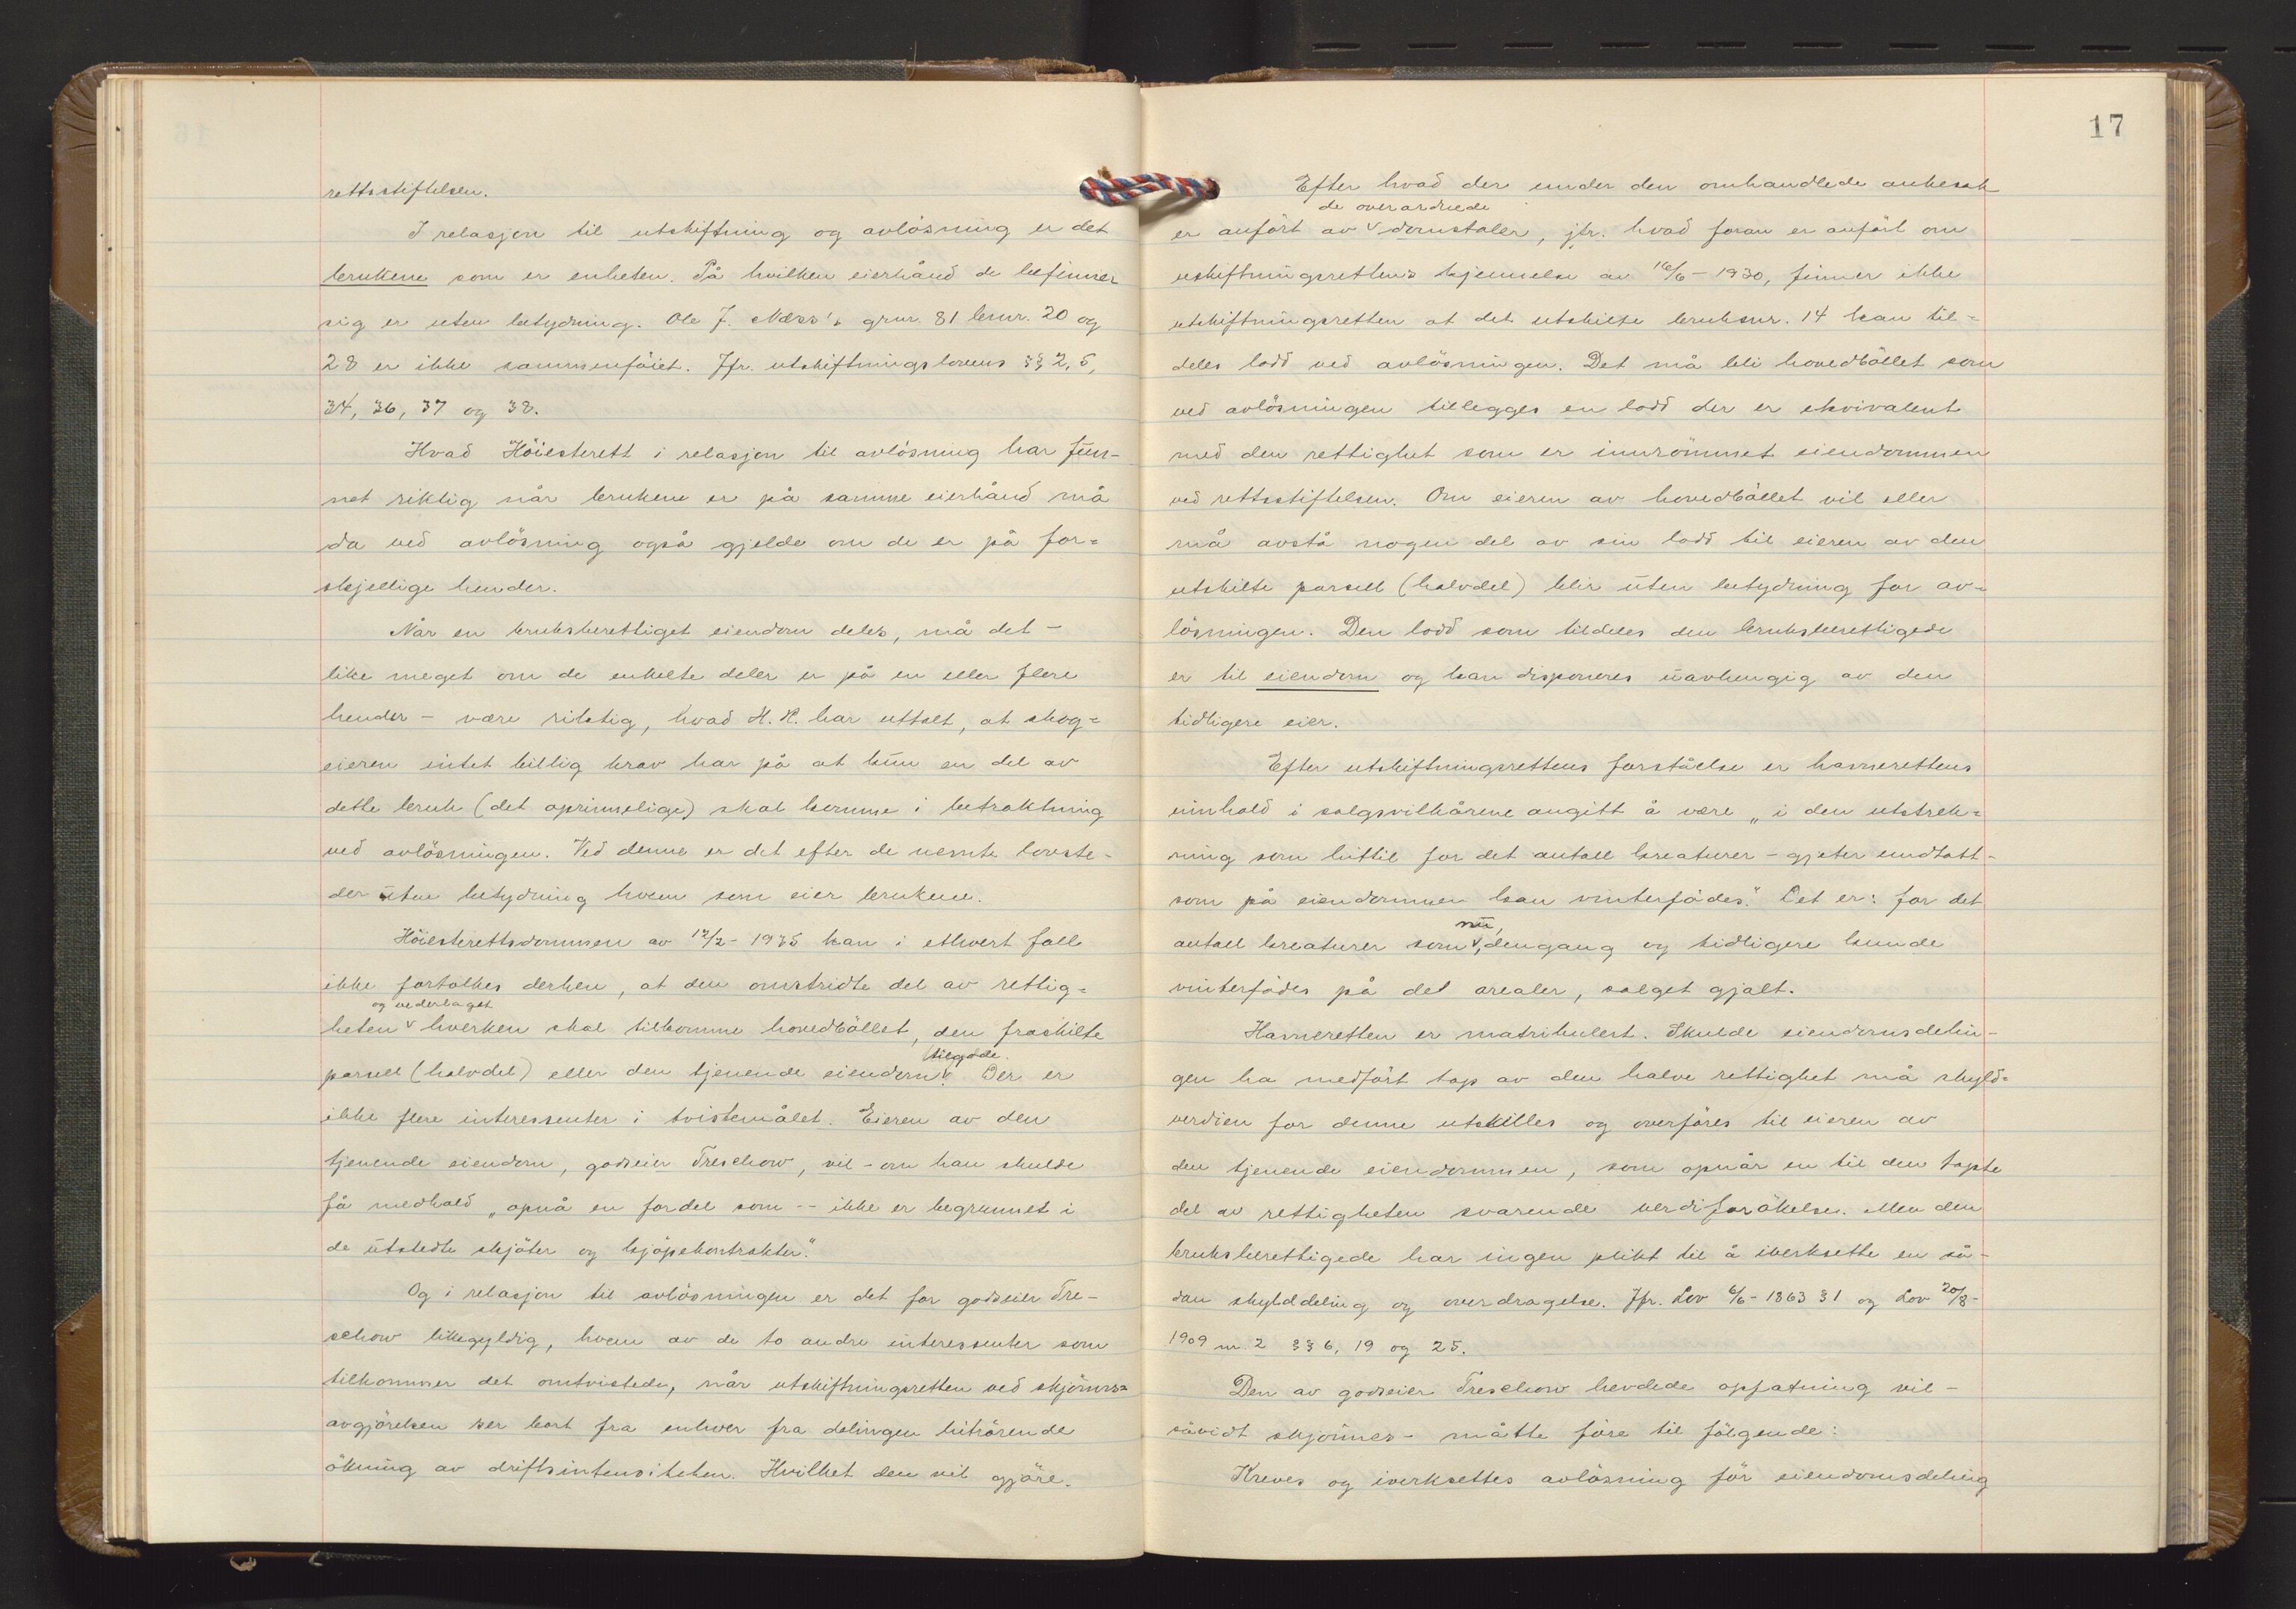 rettsstiftelsen.
I relasjon til utskiftning og avlösning er det
brukene som er enheten. På hvilken eierhånd de befinner
sig er uten betydning. Ole J. Næss's grnr. 81 brnr. 20 og
28 er ikke sammenföiet. Jfr. utskiftningslovens §§ 2, 5,
34, 36, 37 og 38.
Hvad Höiesterett i relasjon til avlösning har fun-
net riktig når brukene er på samme eierhånd må
da ved avlösning også gjelde om de er på for=
skjellige hender.
Når en bruksberettiget eiendom deles, må det -
like meget om de enkelte deler er på en eller flere
hender - være riktig, hvad H. R. har uttalt, at skog=
eieren intet billig krav har på at kun en del av
dette bruk (det oprinnelige) skal komme i betraktning
ved avlösningen. Ved denne er det efter de nevnte lovste-
der uten betydning hvem som eier brukene.
Höiesterettsdommen av 12/2 - 1935 kan i ethvert fall
ikke fortolkes derhen, at den omstridte del av rettig=
og vederlaget
heten v hverken skal tilkomme hovedbölet, den fraskilte
tilgode.
parsell (halvdel) eller den tjenende eiendom v. Der er
ikke flere interessenter i tvistemålet. Eieren av den
tjenende eiendom, godseier Treschow, vil - om han skulde
få medhold „opnå en fordel som -- ikke er begrunnet i
de utstedte skjöter og kjöpekontrakter."
Og i relasjon til avlösningen er det for godseier Tre-
schow likegyldig, hvem av de to andre interessenter som
tilkommer det omtvistede, når utskiftningsretten ved skjönns=
avgjörelsen ser bort fra enhver fra delingen hitrörende
ökning av driftsintensiteten. Hvilket den vil gjöre.
17
Efter hvad der under den omhandlede ankesak
de overordnede
er anfört av v domstoler, jfr. hvad foran er anfört om
uskiftningsrettens kjennelse av 16/6 - 1930, finner ikke
utskiftningsretten at det utskilte bruksnr. 14 kan til=
deles lodd ved avlösningen. Det må bli hovedbölet som
ved avlösningen tillegges en lodd der er ekvivalent
med den rettighet som er innrömmet eiendommen
ved rettsstiftelsen. Om eieren av hovedbölet vil eller
må avstå nogen del av sin lodd til eieren av den
utskilte parsell (halvdel) blir uten betydning for av=
lösningen. Den lodd som tildeles den bruksberettigede
er til eiendom og kan disponeres uavhengig av den
tidligere eier.
Efter utskiftningsrettens forståelse er havnerettens
innhold i salgsvilkårene angitt å være „i den utstrek=
ning som hittil for det antall kreaturer - gjeter undtatt -
som på eiendommen kan vinterfödes." Det er: for det
nu,
antall kreaturer som v, dengang og tidligere kunde
vinterfödes på det arealer, salget gjalt.
Havneretten er matrikulert. Skulde eiendomsdelin-
gen ha medfört tap av den halve rettighet må skyld=
verdien for denne utskilles og overföres til eieren av
den tjenende eiendommen, som opnår en til den tapte
del av rettigheten svarende verdiforökelse. Men den
bruksberettigede har ingen plikt til å iverksette en så-
dan skylddeling og overdragelse. Jfr. Lov 6/6 - 1863 § 1 og Lov 20/8 -
1909 nr. 2 §§ 6, 19 og 25.
Den av godseier Treschow hevdede opfatning vil -
såvidt skjönnes - måtte före til fölgende:
Kreves og iverksettes avlösning för eiendomsdeling